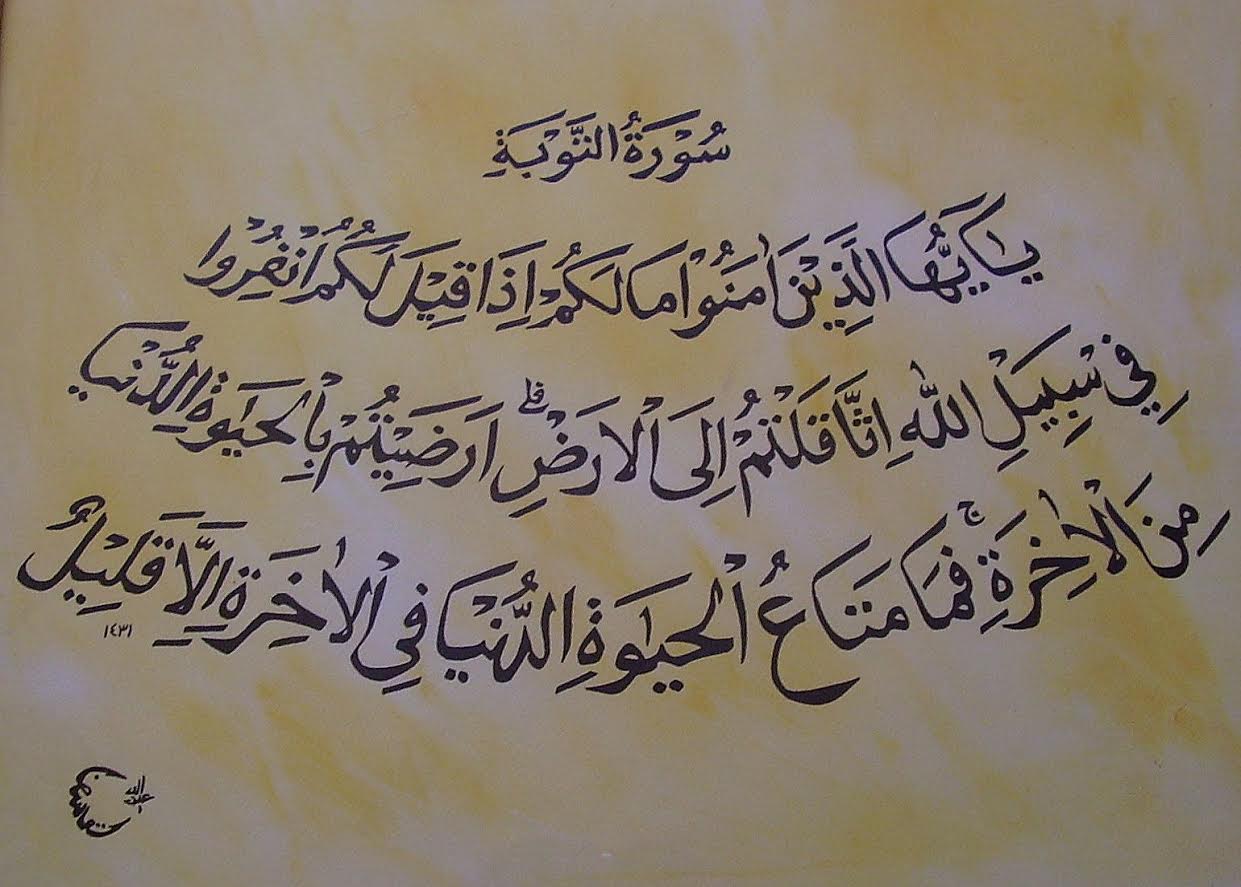 سُوْرَةُ التَّوْبَةِ
يٰٓاَيُّهَا الَّذِيْنَ اٰمَنُوْا مَا لَكُمْ اِذَا قِيْلَ لَكُمُ انْفِرُوْا
فِيْ سَبِيْلِ اللّٰهِ اثَّاقَلْتُمْ اِلَى الْاَرْضِ ۗ اَرَضِيْتُمْ بِالْحَيٰوةِ الدُّنْيَا
مِنَ الْاٰخِرَةِ ۚ فَمَا مَتَاعُ الْحَيٰوةِ الدُّنْيَا فِى الْاٰخِرَةِ اِلَّا قَلِيْلٌ
١٤٣١